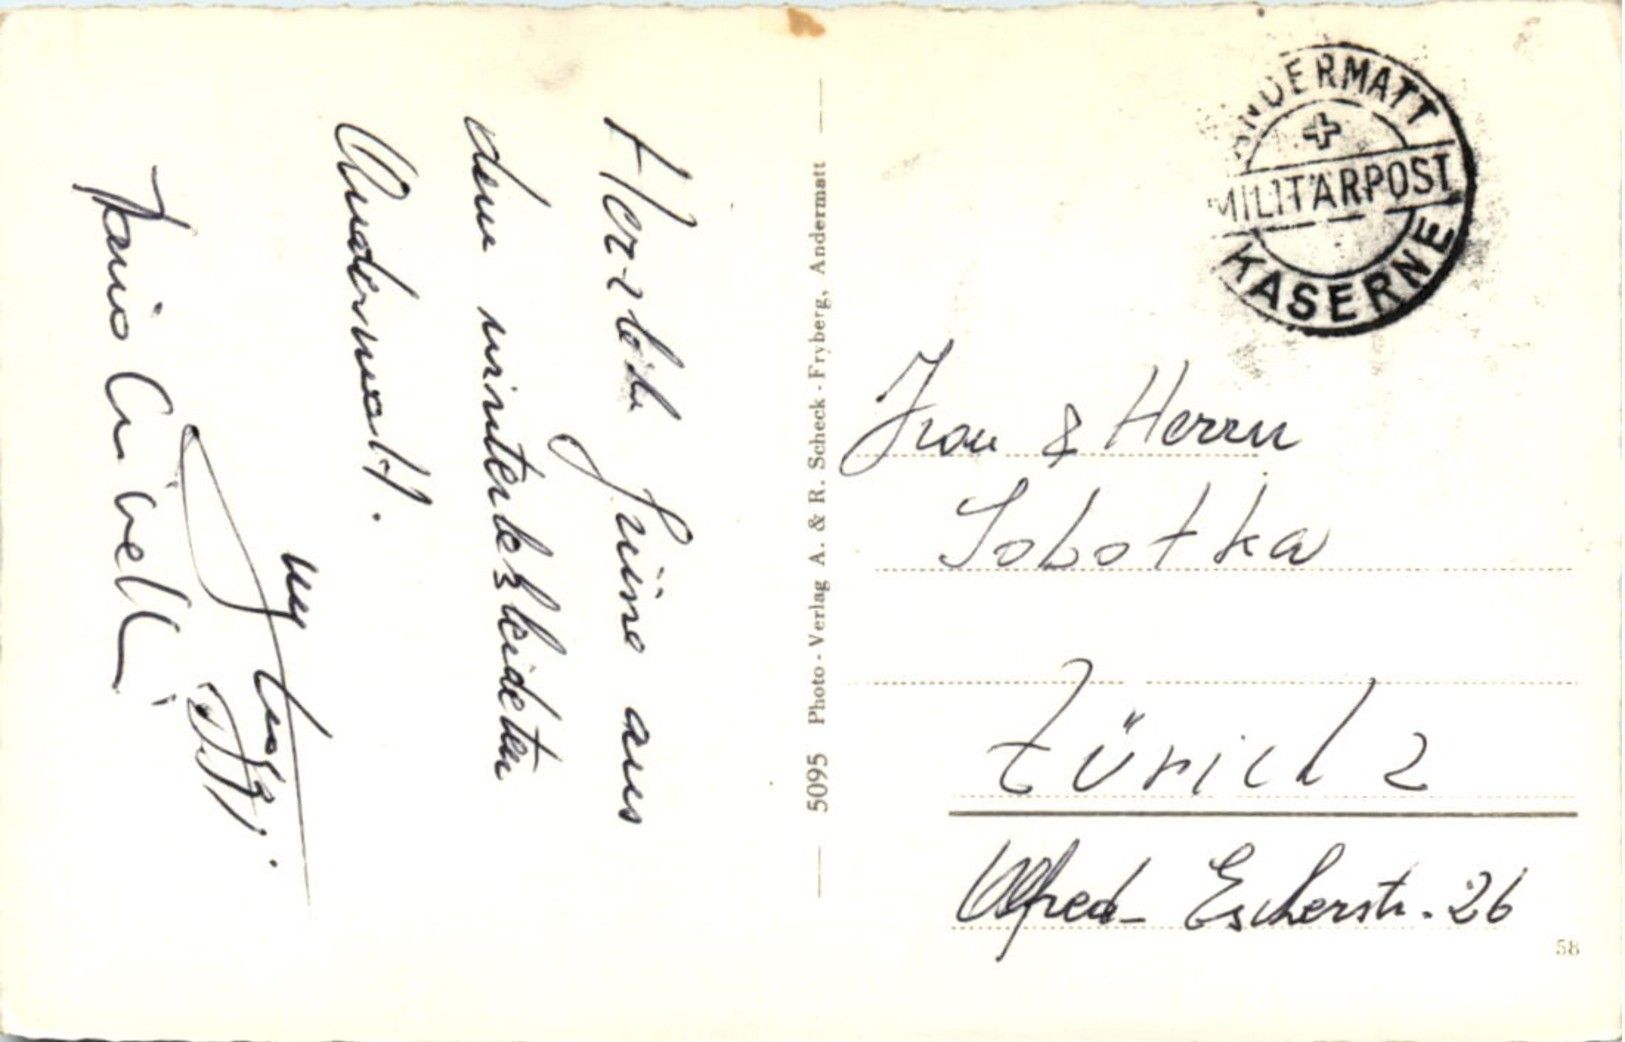 Herzlich Grüsse aus
dem winterbekleideten
Andermatt.
5095 Photo-Verlag A. & R. Scheck-Fryberg, Andermatt
ANDERMATT
MILITÄRPOST
KASERNE
Frau & Herrn
Sobotka
Zürich 2
Alfred-Escherstr. 26
58